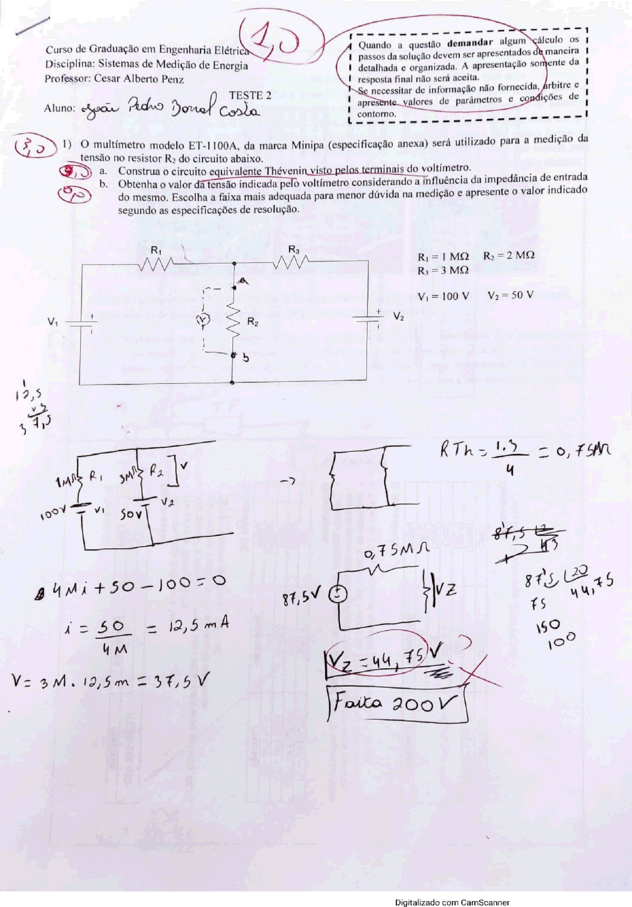 1,0
Curso de Graduação em Engenharia Elétrica
Disciplina: Sistemas de Medição de Energia
Professor: Cesar Alberto Penz
TESTE 2
Aluno: João Pedro Costa
Quando a questão demandar algum cálculo os
passos da solução devem ser apresentados de maneira
detalhada e organizada. A apresentação somente da
resposta final não será aceita.
Se necessitar de informação não fornecida, arbitre e
apresente valores de parâmetros e condições de
contorno.
3,0
1) O multímetro modelo ET-1100A, da marca Minipa (especificação anexa) será utilizado para a medição da
tensão no resistor R2 do circuito abaixo.
a. Construa o circuito equivalente Thévenin visto pelos terminais do voltímetro.
b. Obtenha o valor da tensão indicada pelo voltímetro considerando a influência da impedância de entrada
do mesmo. Escolha a faixa mais adequada para menor dúvida na medição e apresente o valor indicado
segundo as especificações de resolução.
R1
R3
R1 = 1 MΩ R2 = 2 MΩ
R3 = 3 MΩ
V1 = 100 V V2 = 50 V
A
V1
V
R2
V2
b
1
12,5
x3
37,5
1M R1
3M R2
V
100V V1
50V
V2
->
RTh = 1.3/4 = 0,75M
4Mi + 50 - 100 = 0
i = 50/4M = 12,5 mA
V = 3M . 12,5m = 37,5 V
0,75MΩ
87,5V
VZ
87,5 20
75 44,75
150
100
VZ = 44,75 V
Faixa 200V
Digitalizado com CamScanner